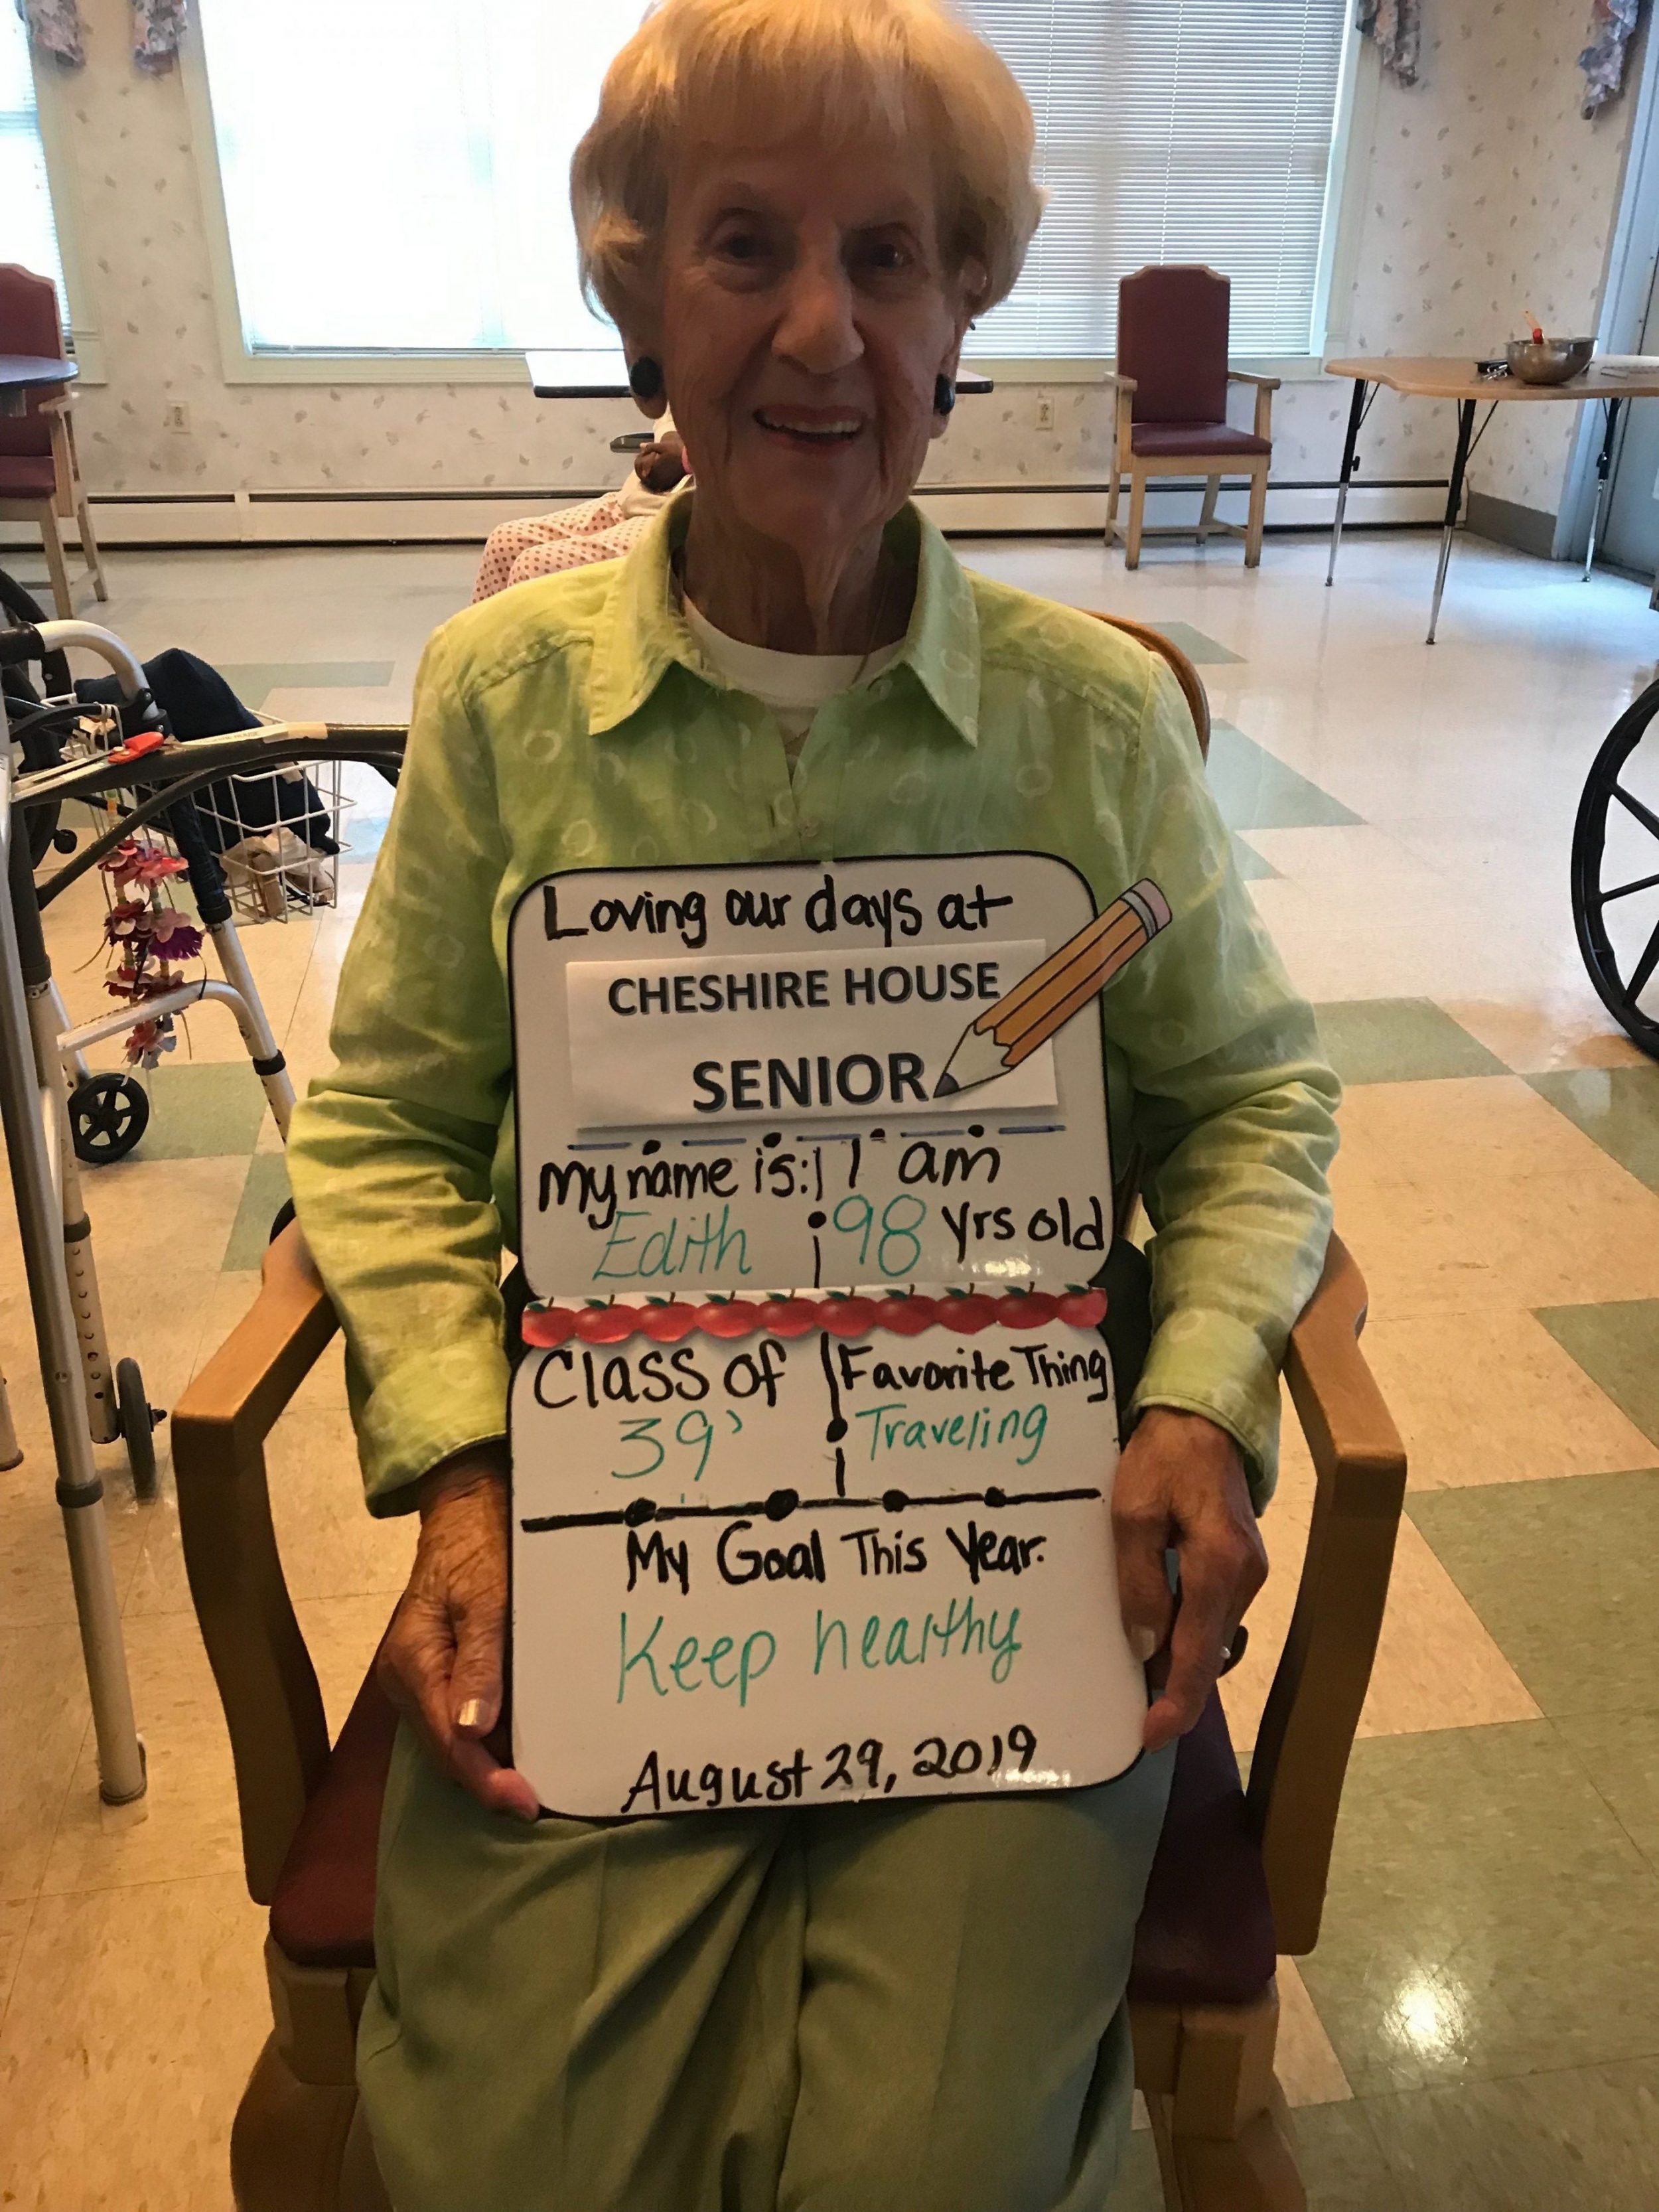 Loving our days at
CHESHIRE HOUSE
SENIOR
My name is: I am
Edith 98 yrs old
Class of Favorite Thing
39' Traveling
My Goal This Year:
Keep healthy
August 29, 2019